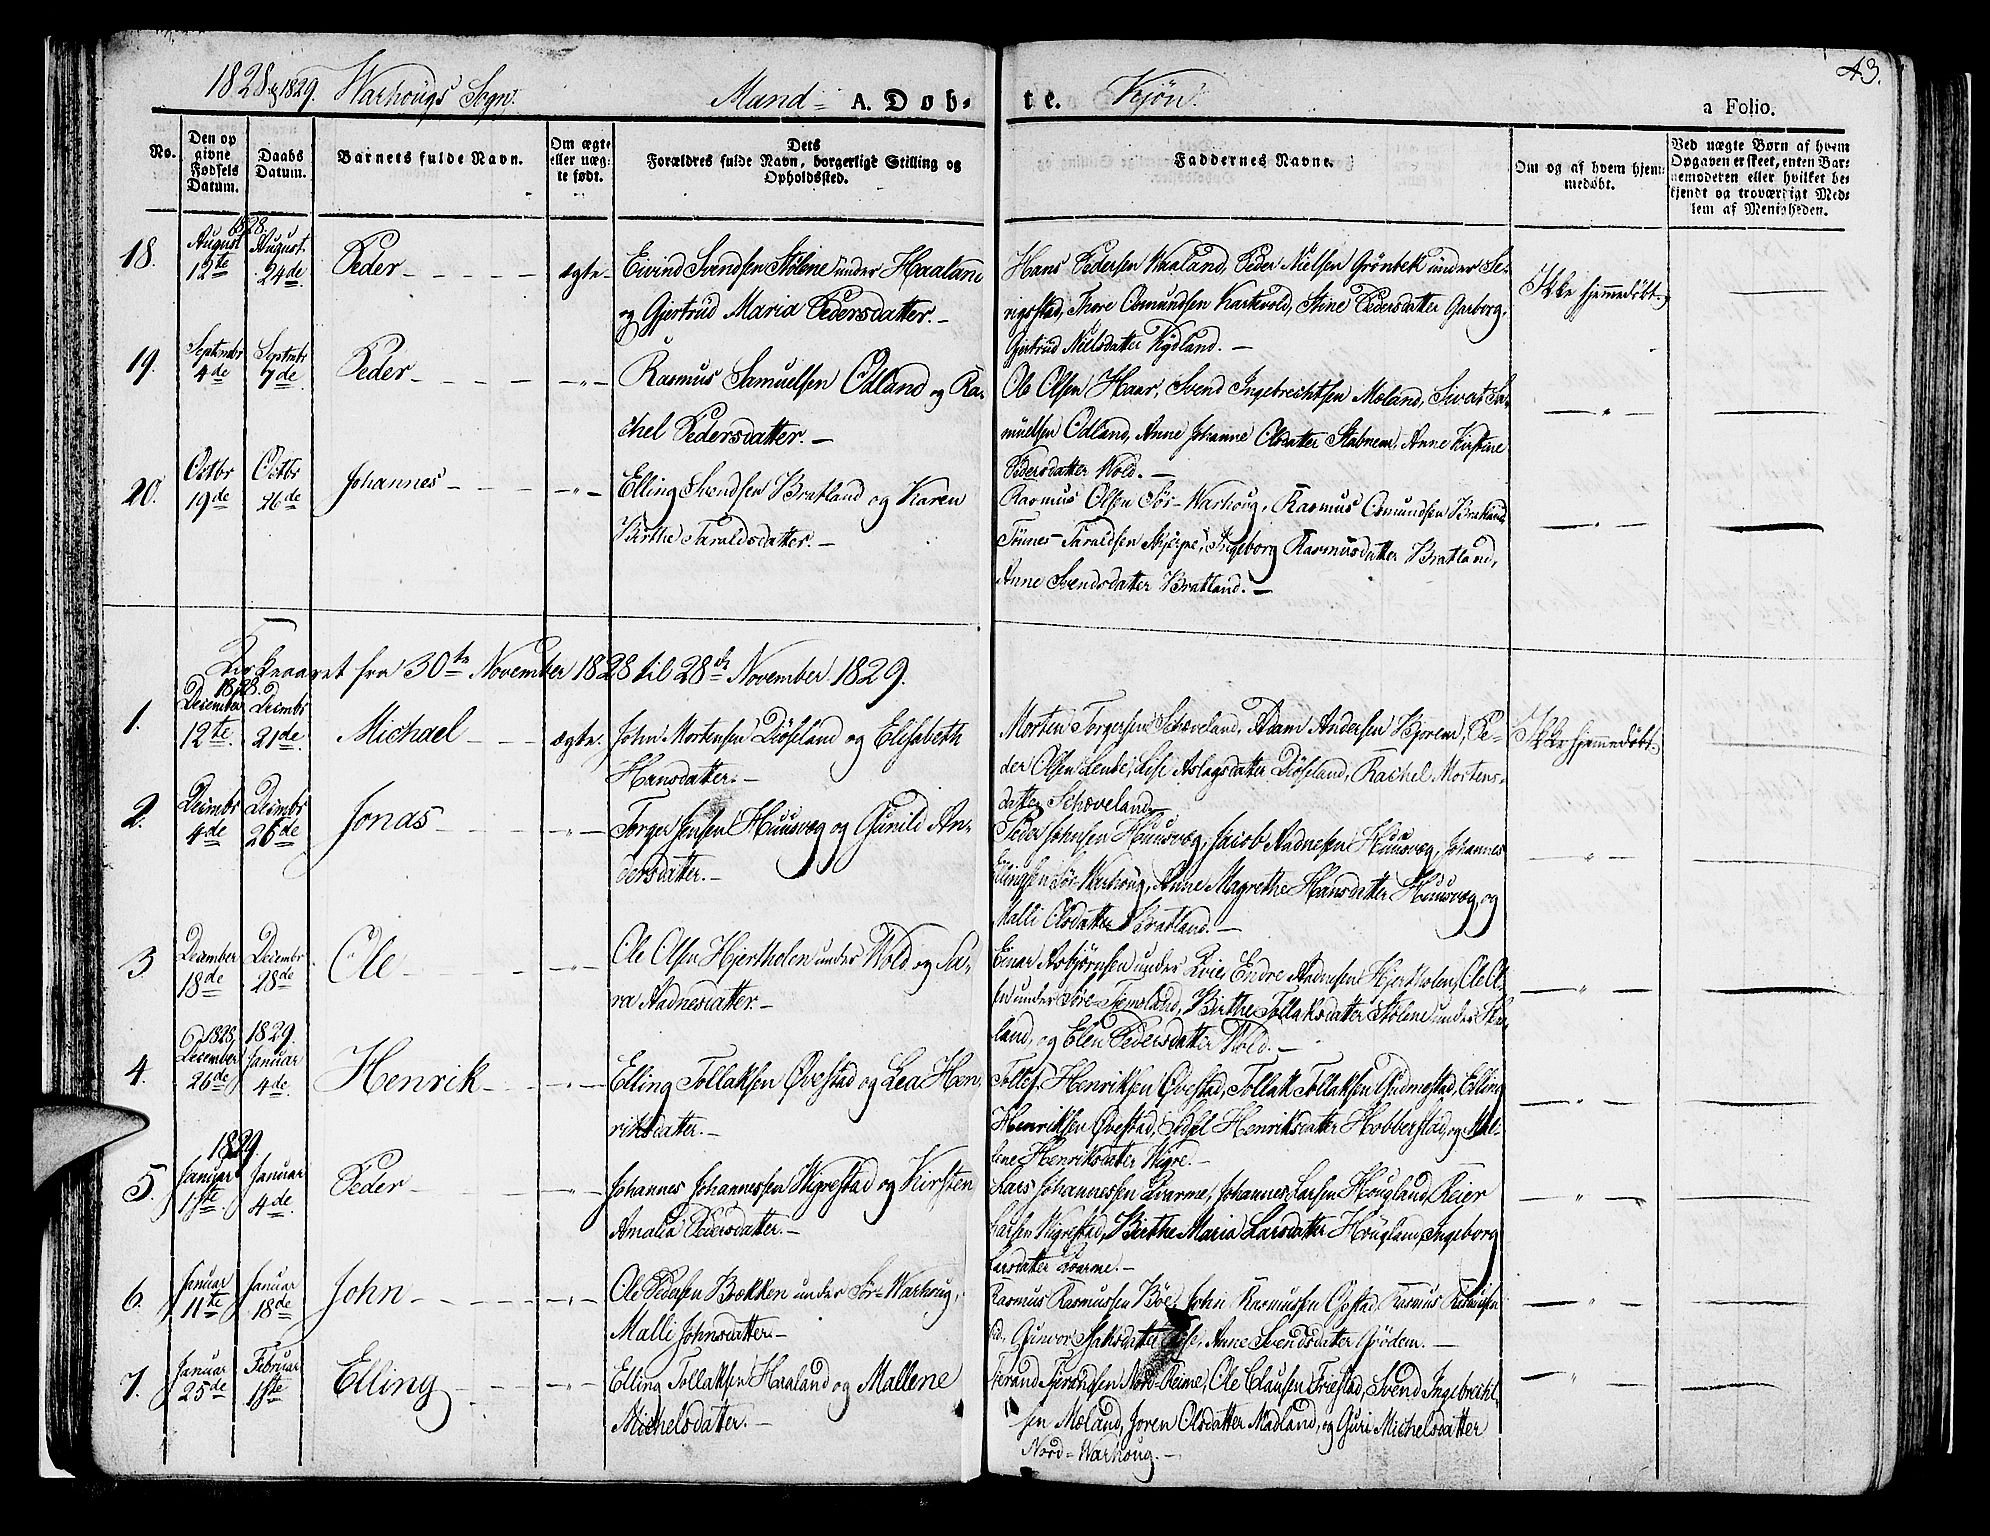 1828 & 1829. Warhougs Sogn.
Mand= A. Døb= te. Kjøn.
43.
a Folio.
No.
Den op givne Fødsels Datum.
Daabs Datum.
Barnets fulde Navn.
Om ægte eller uæg= te født.
Dets Forældres fulde Navn, borgerlige Stilling og Opholdssted.
Faddernes Navne.
Om og af hvem hjem= medøbt.
Ved uægte Børn af hvem Opgaven er skeet, enten Bar= nemoderen eller hvilket be= kjendt og troværdigt Med= lem af Menigheden.
1828.
18. August 12te August 24de Peder ægte. Eivind Svendsen Stølene under Haaland
og Gjertrud Maria Pedersdatter.
Hans Pedersen Haaland, Peder Nielsen Grønbek under Se-
rigstad, Thore Osmundsen Kartevold, Stine Pedersdatter Garborg,
Gjertrud Nielsdatter Rydland.
Ikke hjemmedøbt.
19. Septembr 4de Septmbr 7de Peder " Rasmus Samuelsen Odland og Ra-
chel Pedersdatter.
Ole Olsen Haar, Svend Ingebrechtsen Moland, Sivert Sa-
muelsen Odland, Anne Johanne Olsdatter Stabnem, Anne Kirstine
Pedersdatter Wold.
20. Octbr 19de Octbr 26de Johannes " Elling Svendsen Bratland og Karen
Birthe Taraldsdatter.
Rasmus Olsen Sør-Warhoug, Rasmus Osmundsen Bratland,
Tønnes Taraldsen, Ingeborg Rasmusdatter Bratland,
Anne Svendsdatter Bratland.
Kirkeaaret fra 30te November 1828 til 28de November 1829.
1828.
1. December 12te Decmbr 21de Michael ægte. John Mortensen Diøseland og Elisabeth
Hansdatter.
Morten Torgersen Schæveland, Adam Andersen Bjorem, Pe-
der Olsen Lende, Lise Aslagsdatter Diøseland, Rachel Mortens-
datter Schæveland.
Ikke hjemmedøbt.
2. Decmbr 4de Decmbr 26de Jonas " Torger Jonsen Huusvæg og Gunild An-
dersdatter.
Peder Johnsen Huusvæg, Jacob Aadnesen Huusvæg, Johannes
Ellingsen Sør Warhoug, Anne Magrethe Hansdatter Huusvæg, og
Malli Olsdatter Bratland.
3 December 18de Decembr 28de Ole " Ole Olsen Hjertholen under Wold og Sa-
ra Aadnesdatter.
Einar Asbjørnsen under Qvie, Endre Aadnesen Hjertholen, Ole Ol-
sen under Søre-Tiemsland, Birthe Tollaksdatter Stølene under
land, og Elen Pedersdatter Wold.
4. 1828 December 26de 1829. Januar 4de. Henrik " Elling Tollaksen Øvestad og Lea Hen-
riksdatter.
Tollef Henriksen Øvestad, Tollak Tollaksen Gudmestad, Elling
Henriksen Øvestad, Sidsel Henriksdatter Hobberstad, og Mal-
lene Henriksdatter Wigre.
1829.
5. Januar 1ste Januar 4de. Peder " Johannes Johannessen Wigrestad og Kirsten
Amalia Pedersdatter.
Lars Johannessen Qvarme, Johannes Larsen Hougland, Reier
Larsen Wigrestad, Birthe Maria Larsdatter Hougland, Ingeborg
Larsdatter Qvarme.
6. Januar 11te Januar 18de John " Ole Pedersen Bækken under Sør-Warhoug,
Malli Johnsdatter.
Rasmus Rasmussen Bøe, John Rasmussen Opstad, Rasmus
Gunvor Isaksdatter, Anne Svendsdatter Grødem.
7. Januar 25de Februar 1ste Elling " Elling Tollaksen Haaland og Mallene
Michelsdatter.
Tierand Tjerandsen Nord-Reime, Ole Clausen Friestad, Svend Ingebrecht-
sen Moland, Joren Olsdatter Madland, og Guri Michelsdatter
Nord-Warhoug.